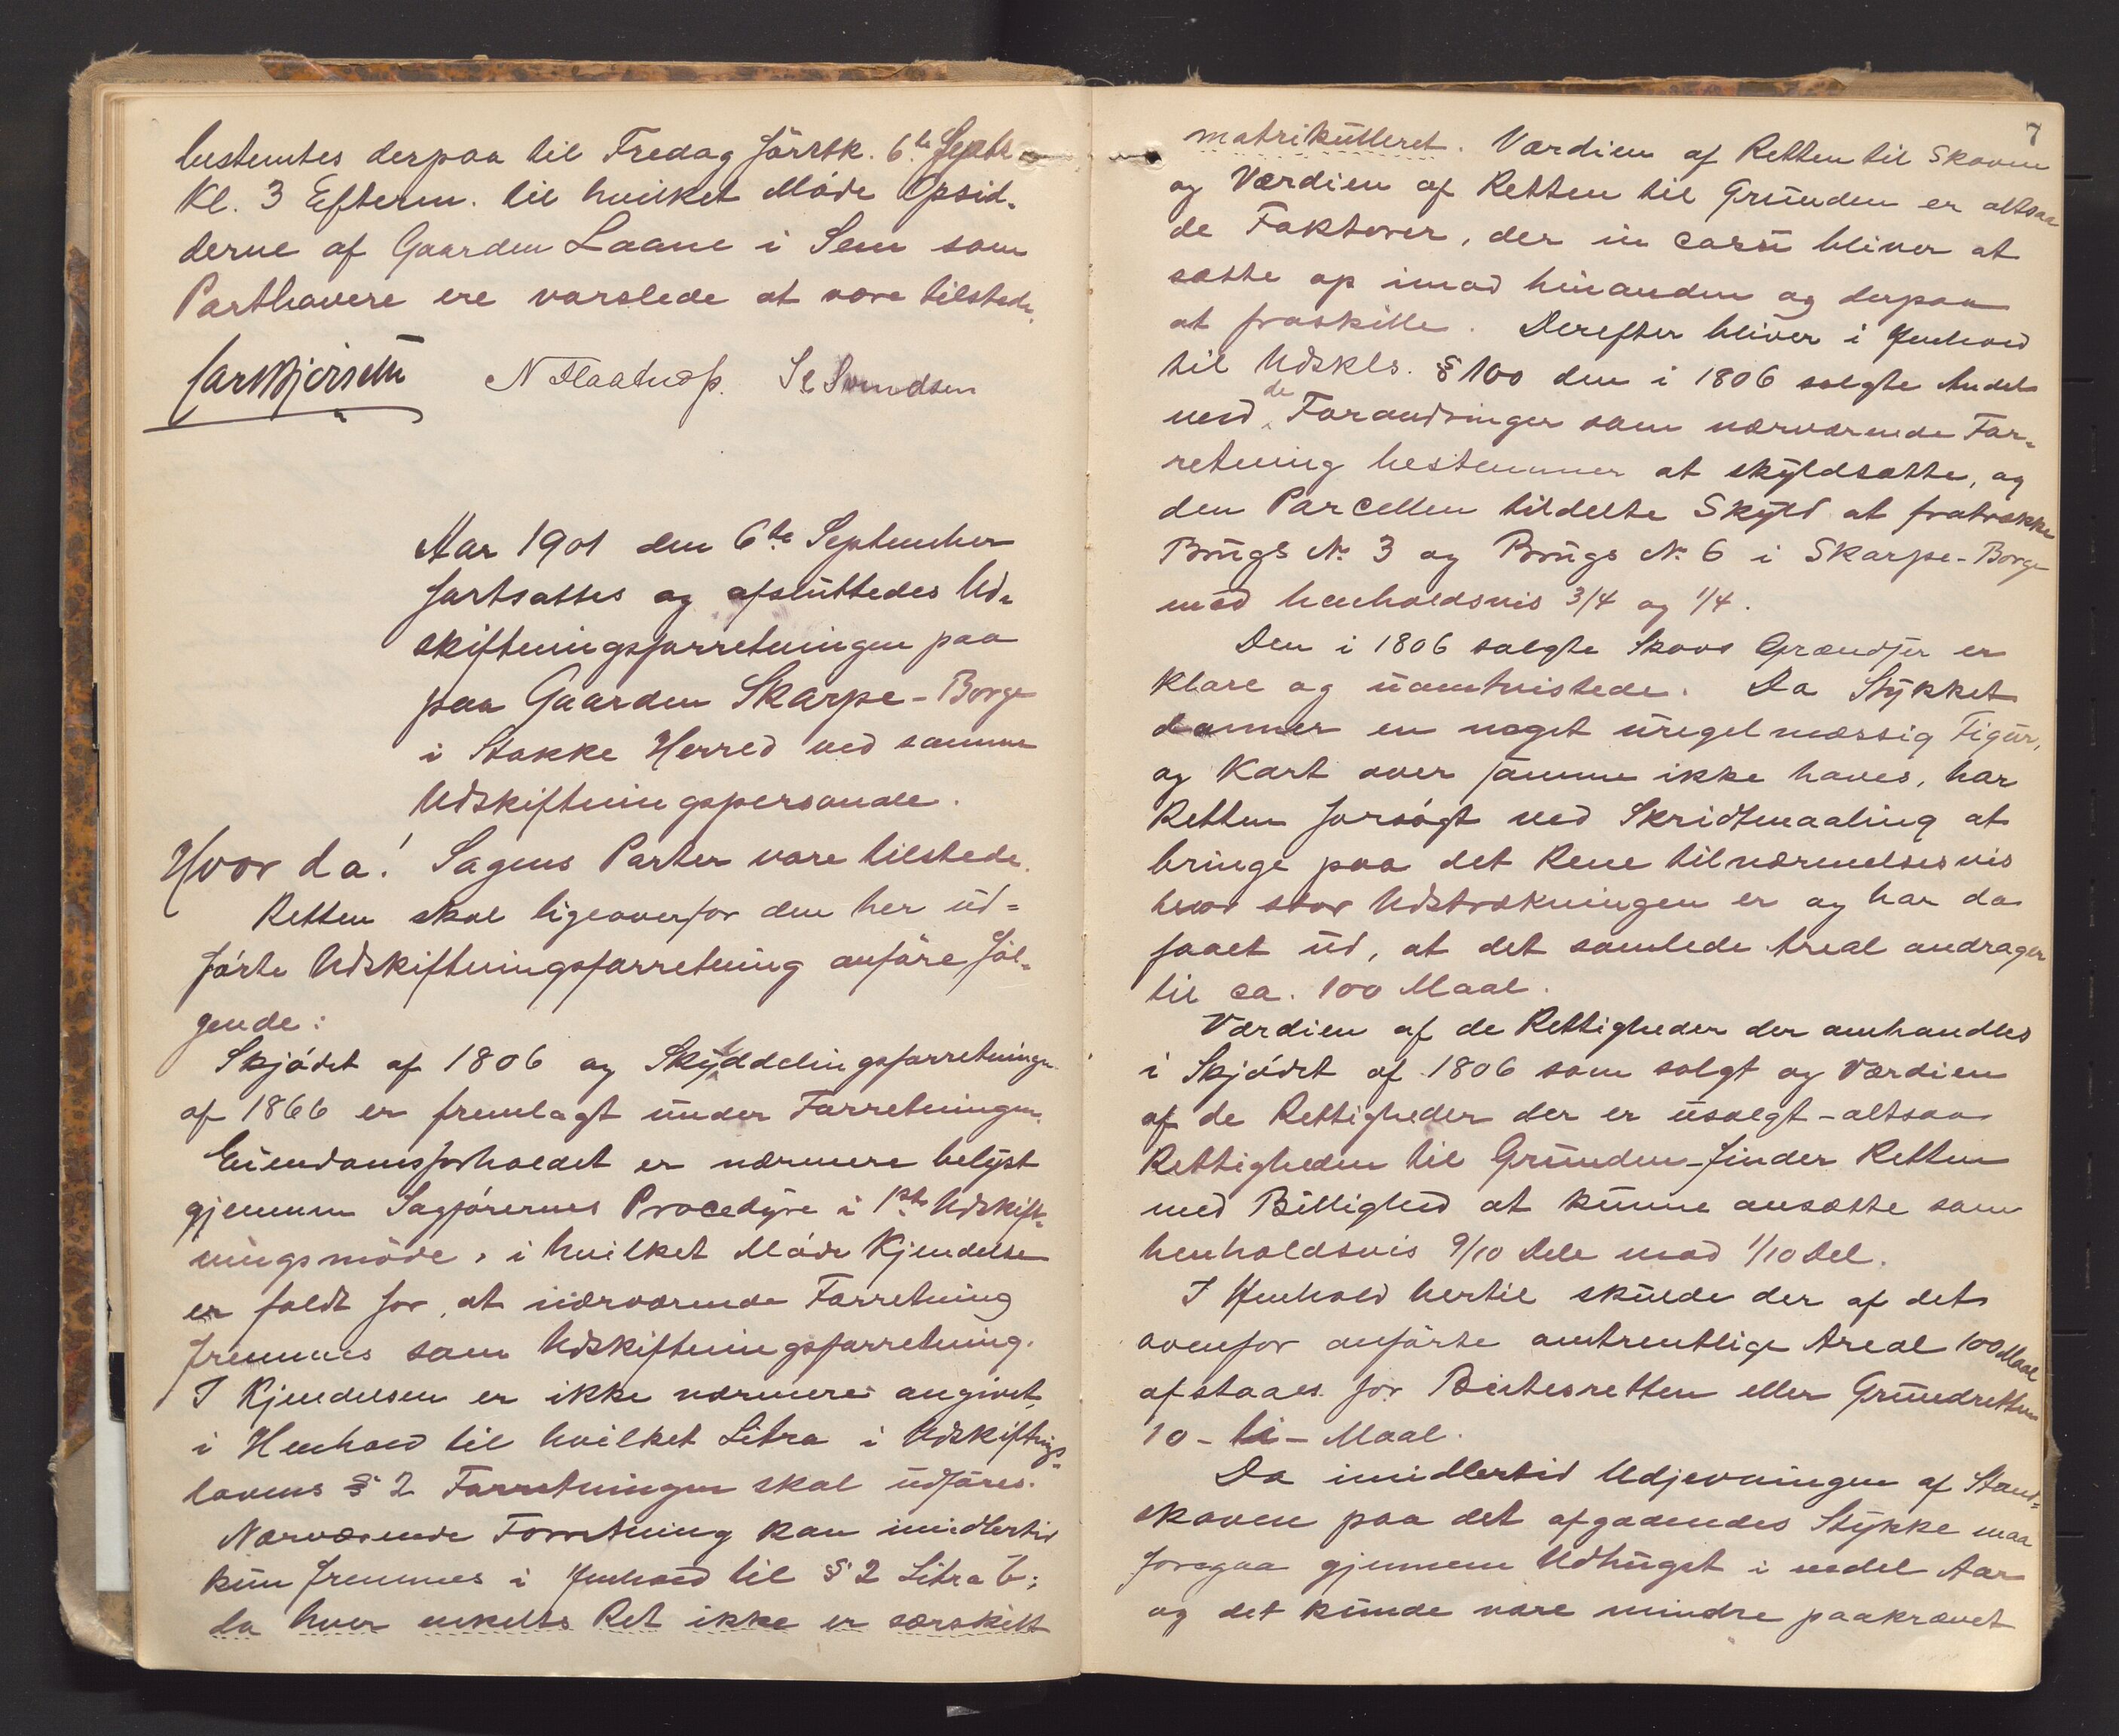 bestemtes derpaa til Fredag førstk. 6te Septr
Kl. 3 Efterm. til hvilket Møde Opsid-
derne af Gaarden Laane i Sem som
Parthavere ere varslede at være tilstede.
N Flaatrop. Sl Svendsen
Aar 1901 den 6te September
fortsattes og afsluttedes Ud-
skiftningsforretningen paa
paa Gaarden Skarpe-Borge
i Stokke Herred ved samme
Udskiftningspersonale.
Hvor da! Sagens Parter vare tilstede.
Retten skal ligeoverfor den her ud-
førte Udskiftningsforretning anføre føl-
gende:
Skjødet af 1806 og Skylddelingsforretningen
af 1866 er fremlagt under Forretningen.
Eiendomsforholdet er nærmere belyst
gjennem Sagførernes Procedyre i 1ste Udskift-
ningsmøde, i hvilket Møde Kjendelse
er faldt for, at nærværende Forretning
fremmes som Udskiftningsforretning.
I Kjendelsen er ikke nærmere angivet,
i Henhold til hvilket Litra i Udskiftnings-
lovens § 2 Forretningen skal udføres.
Nærværende Forretning kan imidlertid
kun fremmes i Henhold til § 2 Litra b;
da hver enkelts Ret ikke er særskilt
7
matrikulleret. Værdien af Retten til Skoven
og Værdien af Retten til Grunden er altsaa
de Faktorer, der in casu bliver at
sætte op imod hinanden og derpaa
at fraskille. Derefter bliver i Henhold
til Udskls. § 100 den i 1806 solgte Andel
med de Forandringer som nærværende For-
retning bestemmer at skyldsætte, og
den Parcellen tildelte Skyld at fratrække
Brugs No 3 og Brugs No 6 i Skarpe-Borge
med henholdsvis 3/4 og 1/4.
Den i 1806 solgte Skovs Grændser er
klare og uomtvistede. Da Stykket
danner en noget uregelmæssig Figur,
og Kart over samme ikke haves, har
Retten forsøgt ved Skridtmaaling at
bringe paa det Rene tilnærmelsesvis
hvor stor Udstrækningen er og har da
faaet ud, at det samlede Areal andrager
til ca. 100 Maal.
Værdien af de Rettigheder der omhandles
i Skjødet af 1806 som solgt og Værdien
af de Rettigheder der er usolgt - altsaa
Rettigheden til Grunden - finder Retten
med Billighed at kunne ansætte som
henholdsvis 9/10 Dele mod 1/10 Del.
I Henhold hertil skulde der af det
ovenfor anførte omtrentlige Areal 100 Maal
afstaaes for Beitesretten eller Grundretten
10 - ti - Maal.
Da imidlertid Udjevningen af Stand-
skoven paa det afgaaendes Stykke maa
foregaa gjennem Udhugst i endel Aar
og det kunde være mindre paakrævet